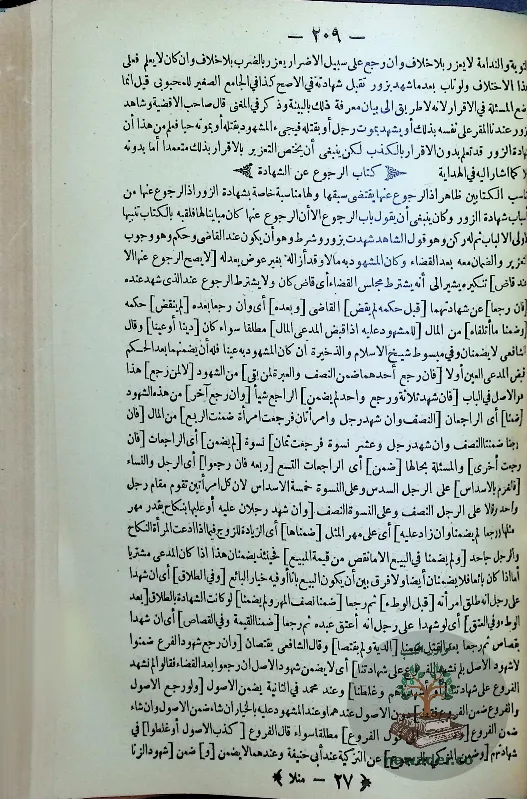 — ٢٠٩ —
توبة والندامة لا يعزر بلا خلاف وان رجع على سبيل الاضرار يعزر بالضرب بلا خلاف وان كان لا يعلم فعلى
ذا الاختلاف ولو تاب بعد ما شهد بزور تقبل شهادته فى الاصح كذا فى الجامع الصغير للمحبوبى قيل انما
ضع المسئلة فى الاقرار لانه لا طريق الى بيان معرفة ذلك بالبينة وذكر فى المغنى قال صاحب الاقضية وشاهد
زور عندنا المقر على نفسه بذلك أو يشهد بموت رجل أو بقتله فيجىء المشهود بقتله أو بموته حيا فعلم من هذا أن
هادة الزور قد تعلم بدون الاقرار بالكذب لكن ينبغى أن يختص التعزير بالاقرار بذلك متعمدا أما بدونه
لا كما اشار اليه فى الهداية كتاب الرجوع عن الشهادة
ناسب الكتابين ظاهر اذ الرجوع عنها يقتضى سبقها ولها مناسبة خاصة بشهادة الزور اذ الرجوع عنها من
باب شهادة الزور وكان ينبغى أن يقول باب الرجوع الا أن الرجوع عنها كان مباينا لها فلقبه بالكتاب تنبيها
ولى الالباب ثم له ركن وهو قول الشاهد شهدت بزور وشرط وهو أن يكون عند القاضى وحكم وهو وجوب
تعزير والضمان معه بعد القضاء وكان المشهود به مالا وقد أزاله بغير عوض يعدله [لا يصح الرجوع عنها الا
عند قاض] تنكيره يشير الى أنه يشترط مجلس القضاء أى قاض كان ولا يشترط الرجوع عند الذى شهد عنده
[فان رجعا] عن شهادتهما [قبل حكمه لم يقض] القاضى [وبعده] أى وان رجعا بعده [لم ينقض] حكمه
[وضمنا ما أتلفاه] من المال [للمشهود عليه اذا قبض المدعى المال] مطلقا سواء كان [دينا أو عينا] وقال
شافعى لا يضمنان وفى مبسوط شيخ الاسلام والذخيرة ان كان المشهود به عينا فله أن يضمنهما بعد الحكم
قبض المدعى العين أولا [فان رجع أحدهما ضمن النصف والعبرة لمن بقى] من الشهود [لا لمن رجع] هذا
هو الاصل فى الباب [فان شهد ثلاثة ورجع واحد لم يضمن] الراجع شيأ [وان رجع آخر] من هذه الشهود
[ضمنا] أى الراجعان [النصف وان شهد رجل وامرأتان فرجعت امرأة ضمنت الربع] من المال [فان
رجعتا ضمنتا النصف وان شهد رجل وعشر نسوة فرجعت ثمان] نسوة [لم يضمن] أى الراجعات [فان
رجعت أخرى] والمسئلة بحالها [ضمن] أى الراجعات التسع [ربعه فان رجعوا] أى الرجل والنساء
[فالغرم بالاسداس] على الرجل السدس وعلى النسوة خمسة الاسداس لان كل امرأتين تقوم مقام رجل
واحد وقالا على الرجل النصف وعلى النسوة النصف [وان شهد رجلان عليه أو عليها بنكاح بقدر مهر
مثلها ورجعا لم يضمنا وان زاد عليه] أى على مهر المثل [ضمناها] أى الزيادة للزوج فيما اذا ادعت المرأة النكاح
والرجل جاحد [ولم يضمنا فى البيع الا ما نقص من قيمة المبيع] فحينئذ يضمنان هذا اذا كان المدعى مشتريا
أما اذا كان بائعا فلا يضمنان أيضا ولا فرق بين أن يكون البيع باتا أو فيه خيار البائع [وفى الطلاق] أى ان شهدا
على رجل انه طلق امرأته [قبل الوطء] ثم رجعا [ضمنا نصف المهر ولم يضمنا] لو كانت الشهادة بالطلاق [بعد
الوطء وفى العتق] أى لو شهدا على رجل انه أعتق عبده ثم رجعا [ضمنا القيمة وفى القصاص] أى ان شهدا
بقصاص ثم رجعا بعد القتل [ضمنا الدية ولم يقتصا] وقال الشافعى يقتصان [وان رجع شهود الفرع ضمنوا
لا شهود الاصل بلم نشهد الفروع على شهادتنا] أى لا يضمن شهود الاصل ان رجعوا بعد القضاء فقالوا لم نشهد
الفروع على شهادتنا وغلطنا] وعند محمد فى الثانية يضمن الاصول [ولو رجع الاصول
والفروع ضمن الفروع الاصول عندهما وعند المشهود عليه بالخيار ان شاء ضمن الاصول وان شاء
ضمن الفروع الفروع] مطلقا سواء قال الفروع [كذب الاصول أو غلطوا] فى
شهادتهم [وضمن المزكى بالرجوع] عن التزكية عند أبى حنيفة وعندهما لا يضمن [و] ضمن [شهود الزنا
﴿ ٢٧ — منلا ﴾